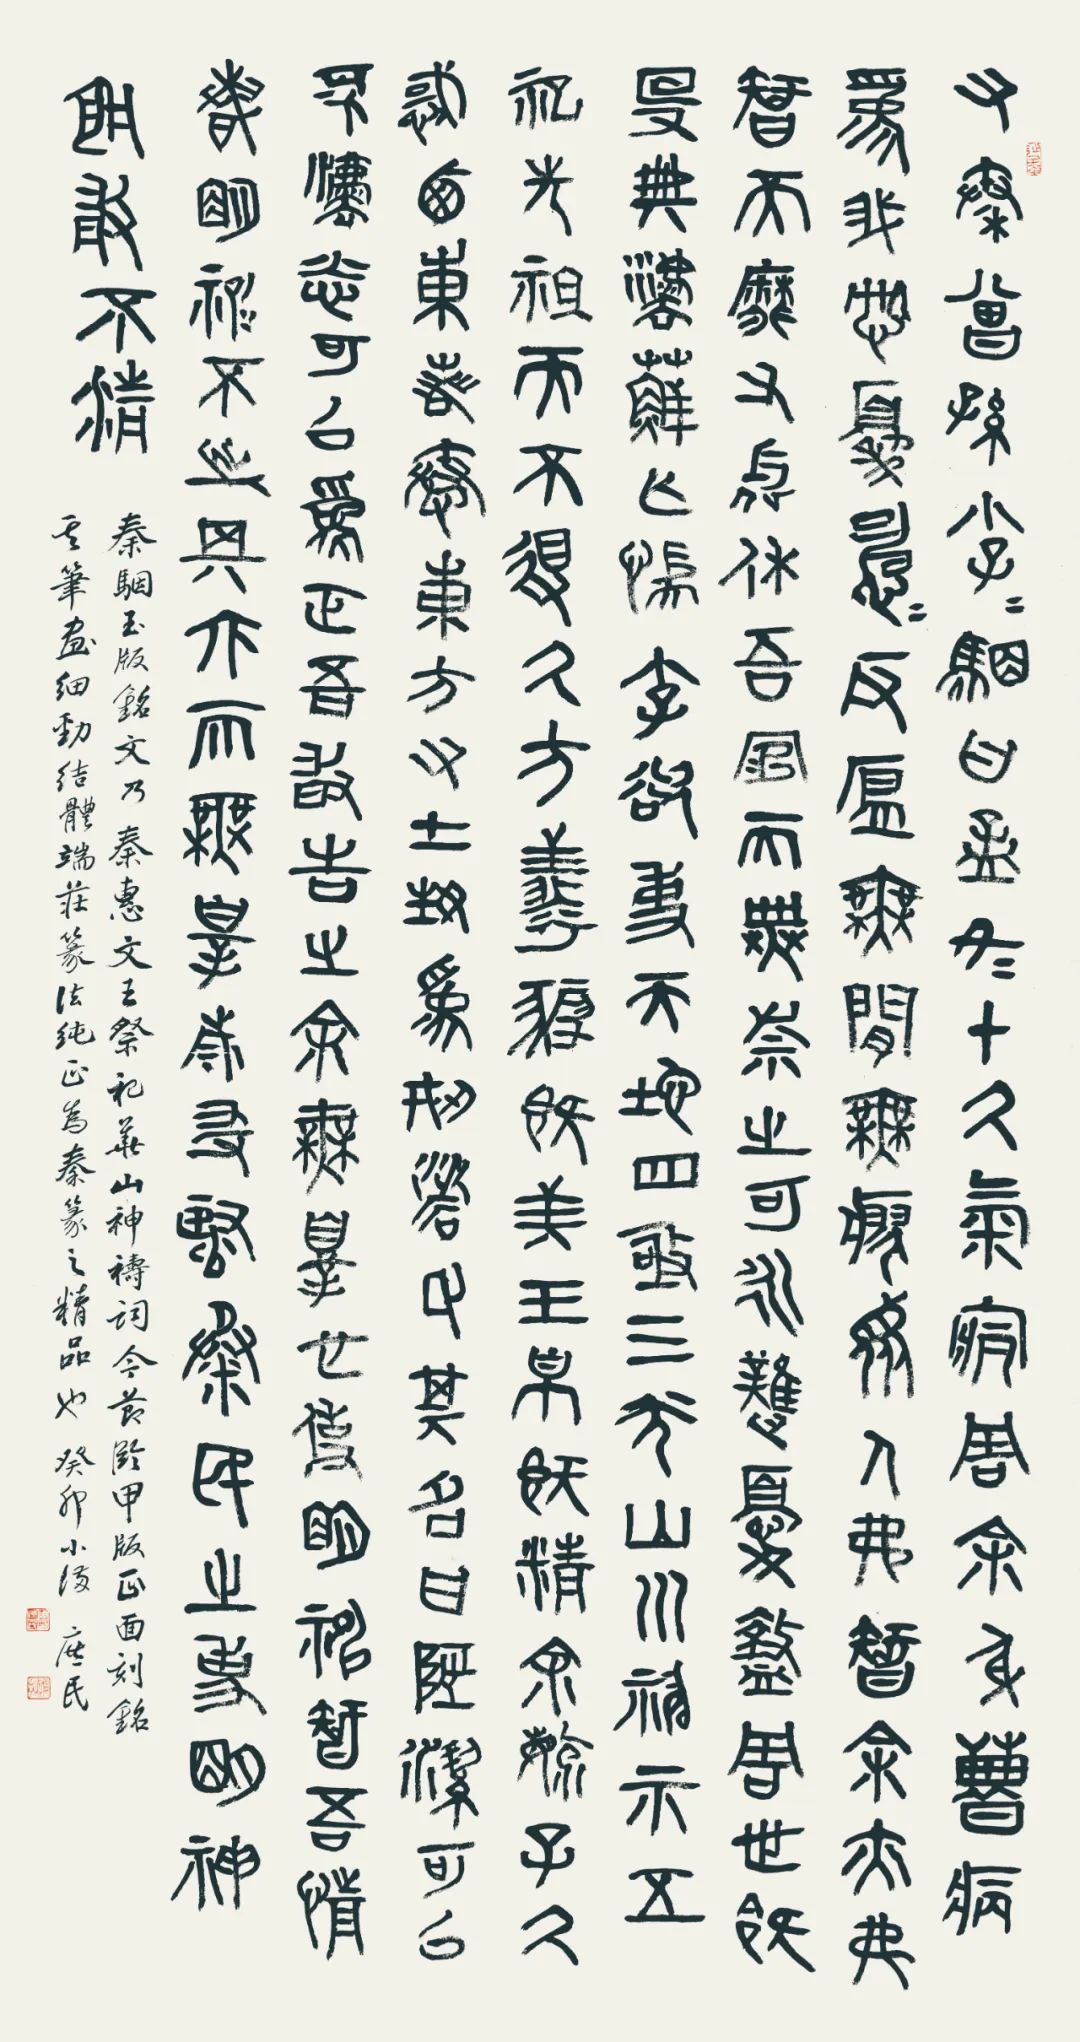 又秦曾孫小子駰曰孟冬十久氣周余身曹病
為我慼憂反無間無瘳眾人弗智余亦弗
智而靡又息休吾窮而無奈之可永戁憂盭周世既
沒典法蘚亡惴小子欲事天地四極三光山川神示五
祀先祖而不得久方羲豭既美玉帛既精余毓子久
惑西東若惷東方又土姓為刑法氏其名曰陘潔可以
為法可以為正吾敢告之余無罪也使明神智吾情
若明神不其行而無罪友烝民之事明神
孰敢不精
秦駰玉版銘文乃秦惠文王祭祀華山神禱詞今節臨甲版正面刻銘
其筆畫細勁結體端莊篆法純正為秦篆之精品也 癸卯小滿 庶民